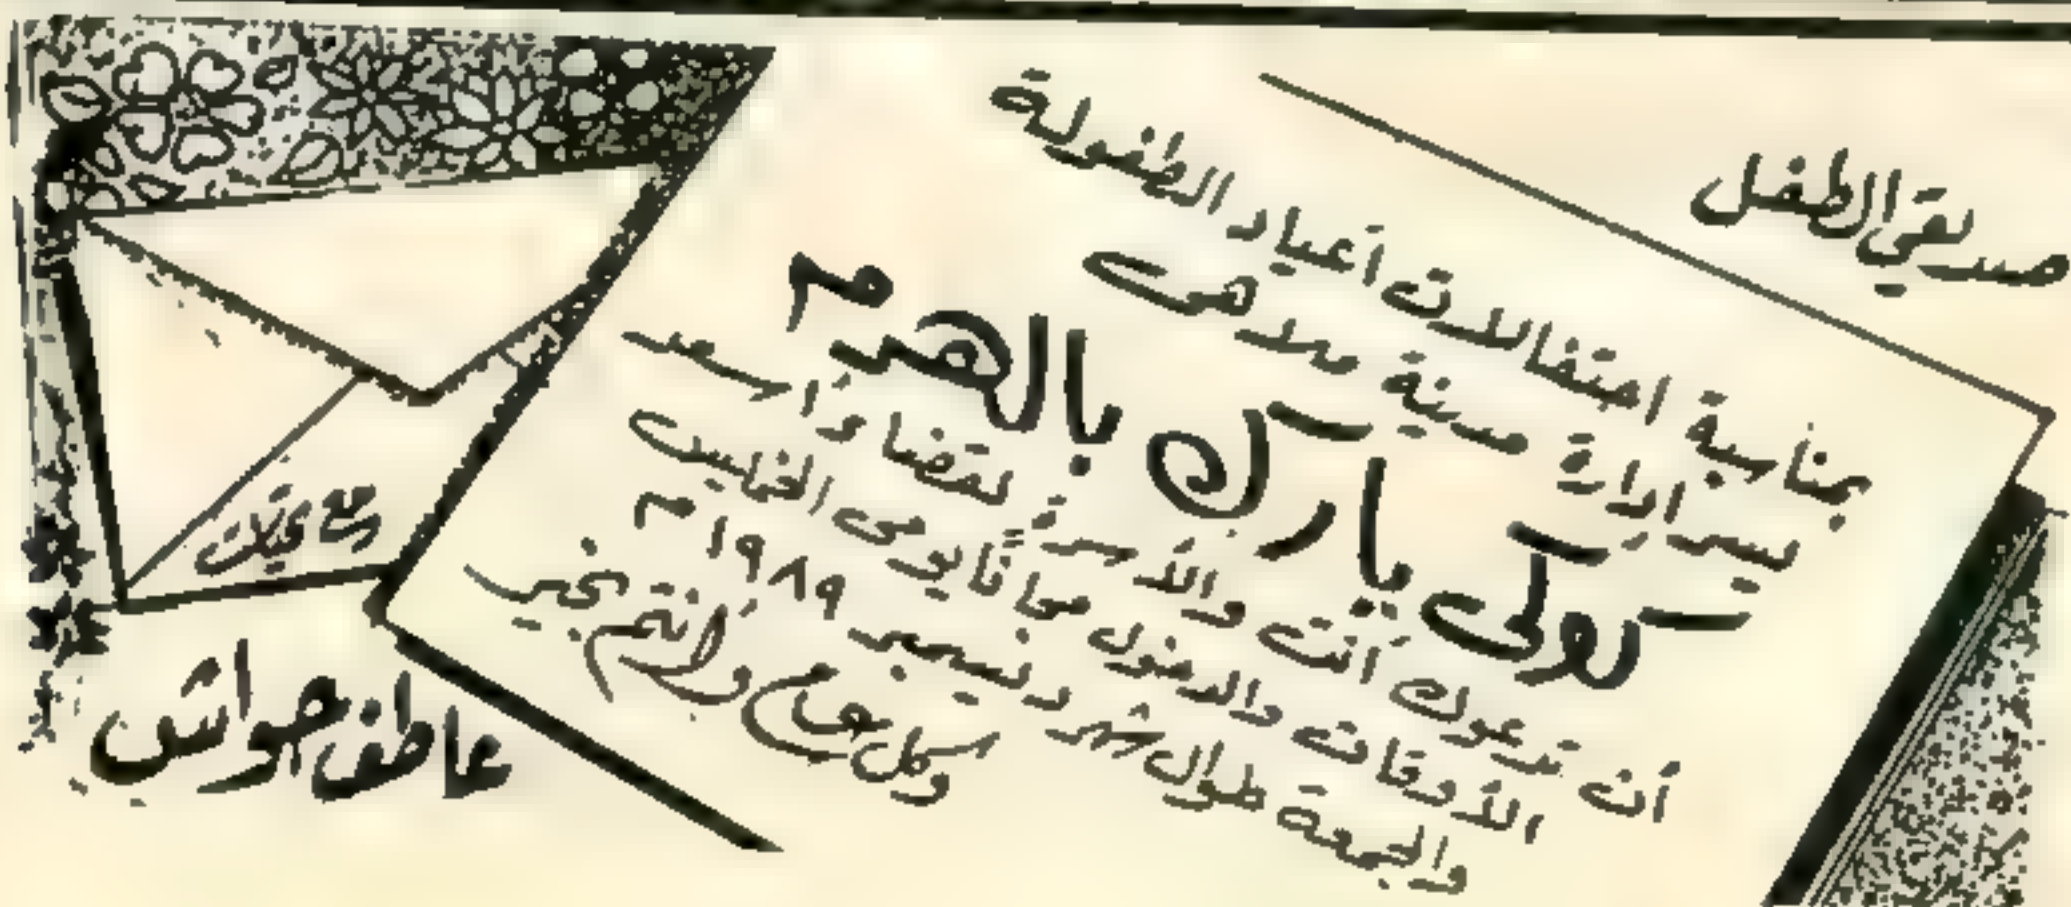 صديقي الطفل
بمناسبة احتفالات أعياد الطفولة
يسر إدارة مدينة ملاهى
كوكى بارك بالهرم
أن تدعوك أنت والأسرة لقضاء أسعد
الأوقات والدخول مجانًا يومى الخميس
والجمعة طوال شهر ديسمبر ١٩٨٩ م
وكل عام وأنتم بخير
مع تحيات
عاطف حواش